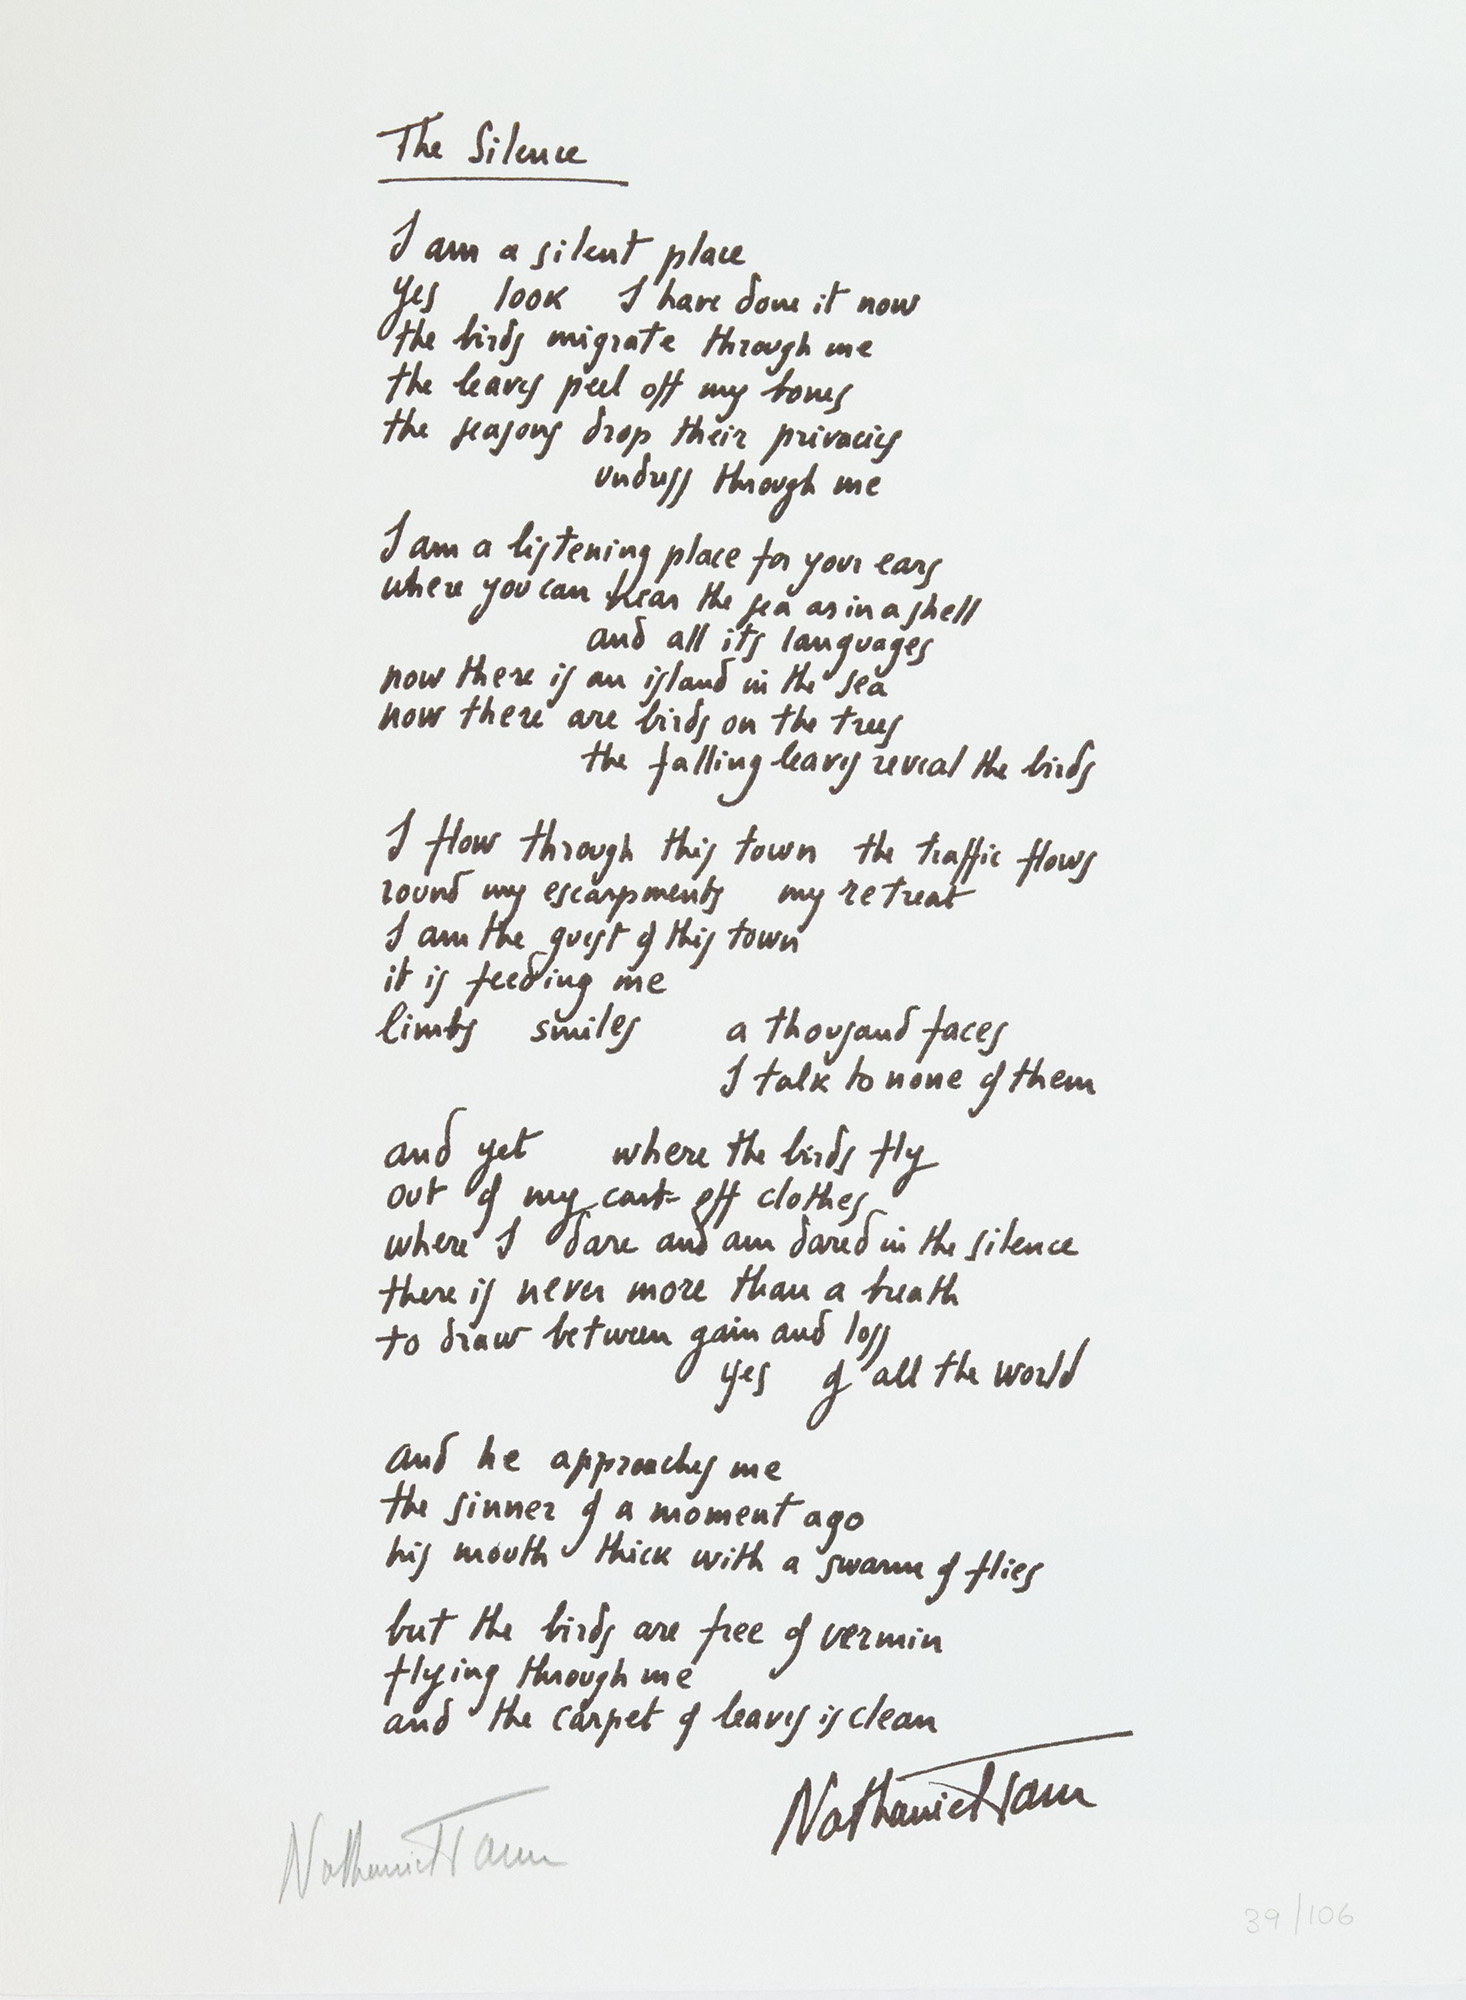 The Silence
I am a silent place
yes look I have done it now
the birds migrate through me
the leaves peel off my bones
the seasons drop their privacies
undress through me
I am a listening place for your ears
where you can hear the sea as in a shell
and all its languages
now there is an island in the sea
now there are birds on the trees
the falling leaves reveal the birds
I flow through this town the traffic flows
round my escarpments my retreat
I am the guest of this town
it is feeding me
limbs smiles a thousand faces
I talk to none of them
and yet where the birds fly
out of my cast-off clothes
where I dare and am dared in the silence
there is never more than a breath
to draw between gain and loss
yes of all the world
and he approaches me
the sinner of a moment ago
his mouth thick with a swarm of flies
but the birds are free of vermin
flying through me
and the carpet of leaves is clean
Nathaniel Tarn
Nathaniel Tarn
39/106